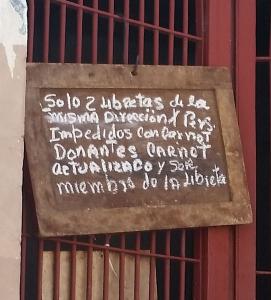 Solo 2 Libretas de la
misma Dirección y Prs
Impedidos con Carnet
Donantes Carnet
actualizado y Solo
miembro de la Libreta